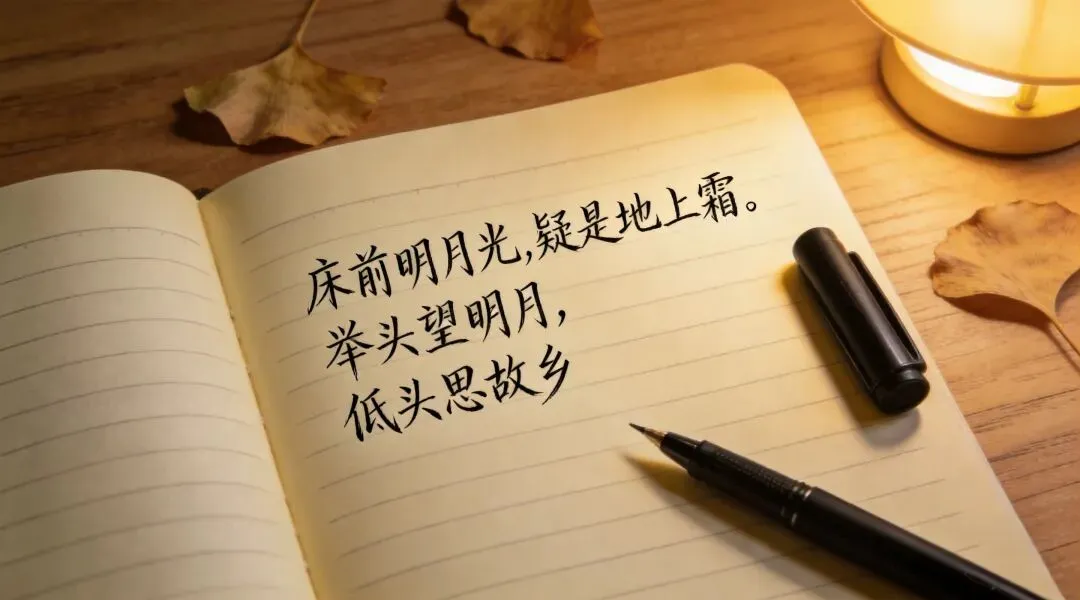 床前明月光,疑是地上霜。
举头望明月,
低头思故乡